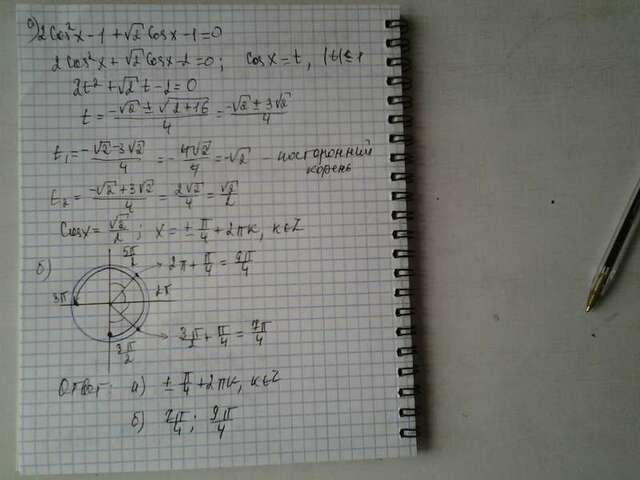 а) 2cos²x - 1 + √2 cosx - 1 = 0
2cos²x + √2 cosx - 2 = 0; cosx = t, |t| ≤ 1
2t² + √2 t - 2 = 0
t = (-√2 ± √(2+16))/4 = (-√2 ± 3√2)/4
t₁ = (-√2 - 3√2)/4 = -4√2/4 = -√2 - посторонний корень
t₂ = (-√2 + 3√2)/4 = 2√2/4 = √2/2
Cosx = √2/2; x = ± π/4 + 2πк, к∈Z
б)
5π/2
2π + π/4 = 9π/4
3π
2π
3π/2 + π/4 = 7π/4
3π/2
Ответ: а) ± π/4 + 2πк, к∈Z
б) 7π/4; 9π/4